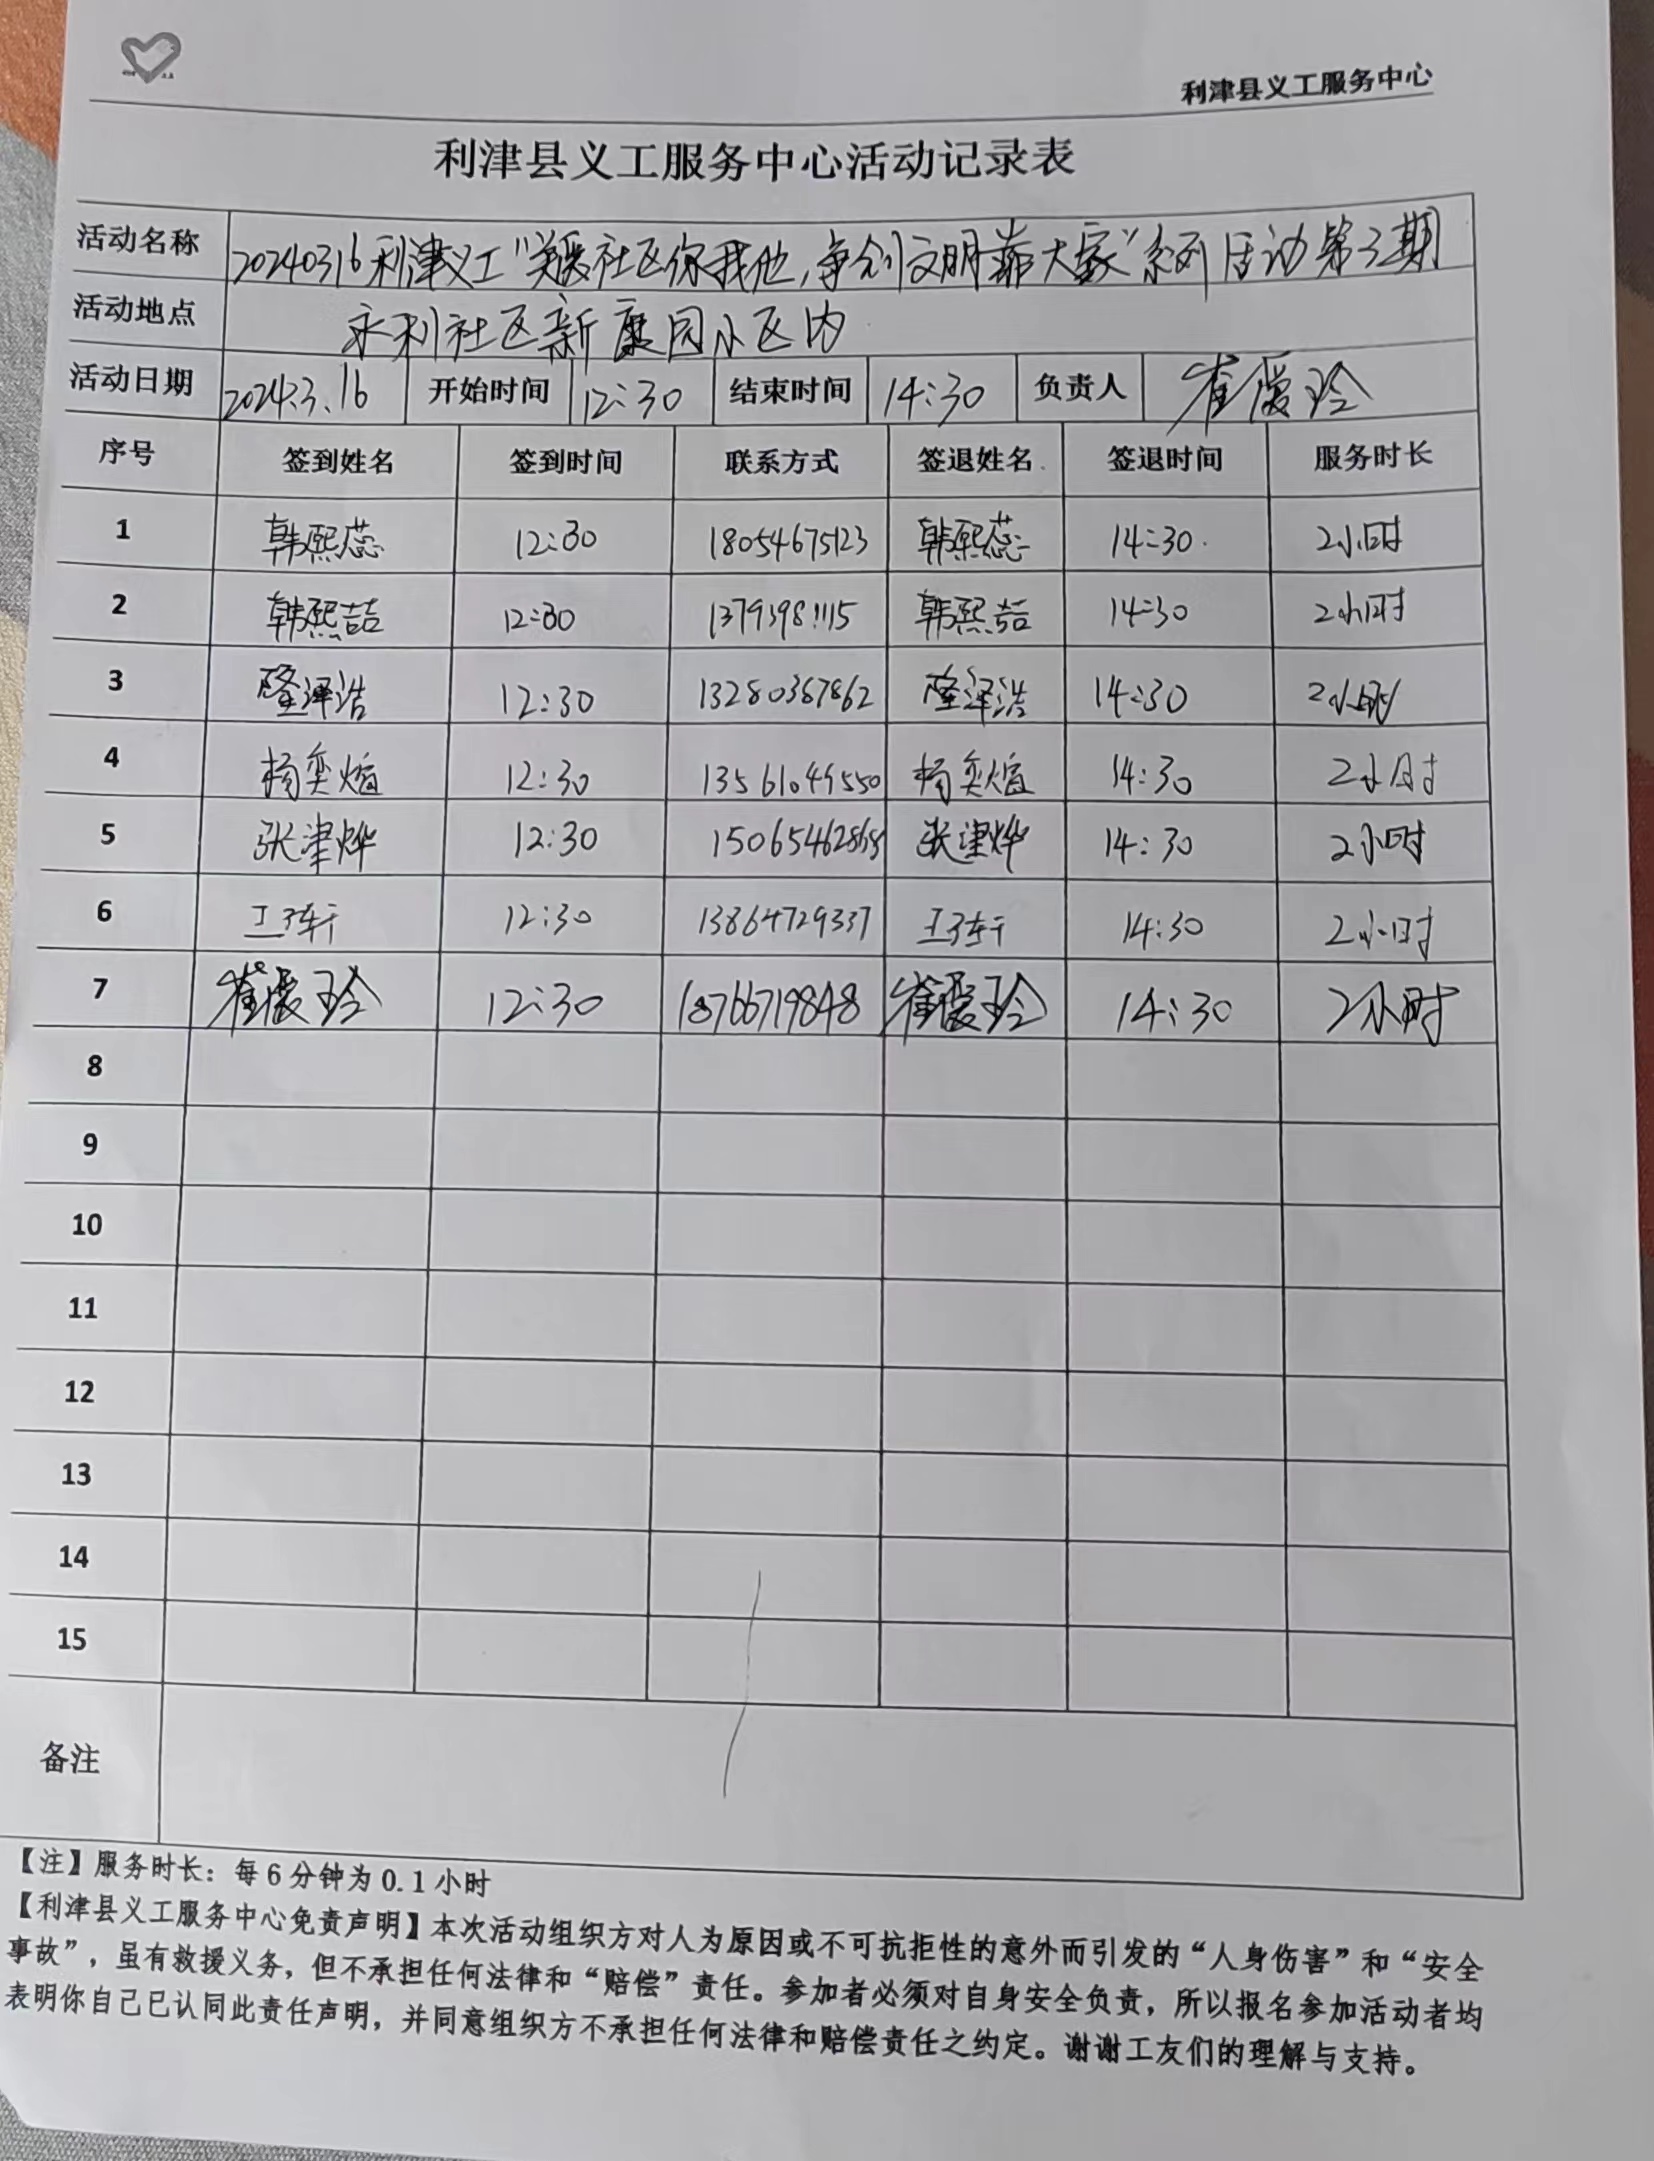 利津县义工服务中心
利津县义工服务中心活动记录表
活动名称 20240316利津义工“关爱社区你我他,争创文明靠大家”系列活动第三期
活动地点 永利社区新康园小区内
活动日期 2024.3.16 开始时间 12:30 结束时间 14:30 负责人 崔爱玲
序号 签到姓名 签到时间 联系方式 签退姓名 签退时间 服务时长
1 韩熙蕊 12:30 18054675123 韩熙蕊 14:30 2小时
2 韩熙喆 12:30 13793981115 韩熙喆 14:30 2小时
3 隆泽浩 12:30 13280367862 隆泽浩 14:30 2小时
4 杨奕煊 12:30 13561049550 杨奕煊 14:30 2小时
5 张津烨 12:30 15065462868 张津烨 14:30 2小时
6 王子轩 12:30 13864729337 王子轩 14:30 2小时
7 崔爱玲 12:30 18766719848 崔爱玲 14:30 2小时
8
9
10
11
12
13
14
15
备注
【注】服务时长：每6分钟为0.1小时
【利津县义工服务中心免责声明】本次活动组织方对人为原因或不可抗拒性的意外而引发的“人身伤害”和“安全
事故”，虽有救援义务，但不承担任何法律和“赔偿”责任。参加者必须对自身安全负责，所以报名参加活动者均
表明你自己已认同此责任声明，并同意组织方不承担任何法律和赔偿责任之约定。谢谢工友们的理解与支持。